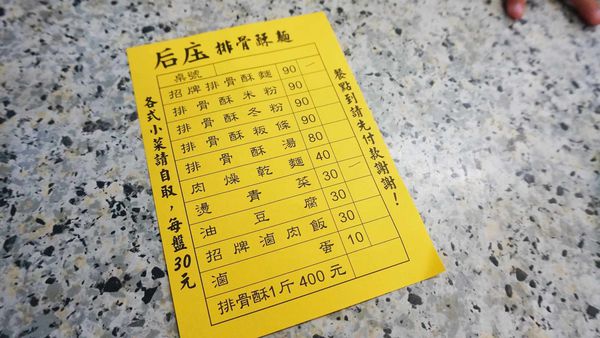 后庄 排骨酥麵
桌號
招牌排骨酥麵 90 一
排骨酥米粉 90
排骨酥冬粉 90
排骨酥板條 90
排骨酥湯 80
肉燥乾麵 40
燙青菜 30 一
油豆腐 30
招牌滷肉飯 30
滷蛋 10
排骨酥1斤 400 元
餐點到請先付款謝謝!
各式小菜請自取,每盤30元